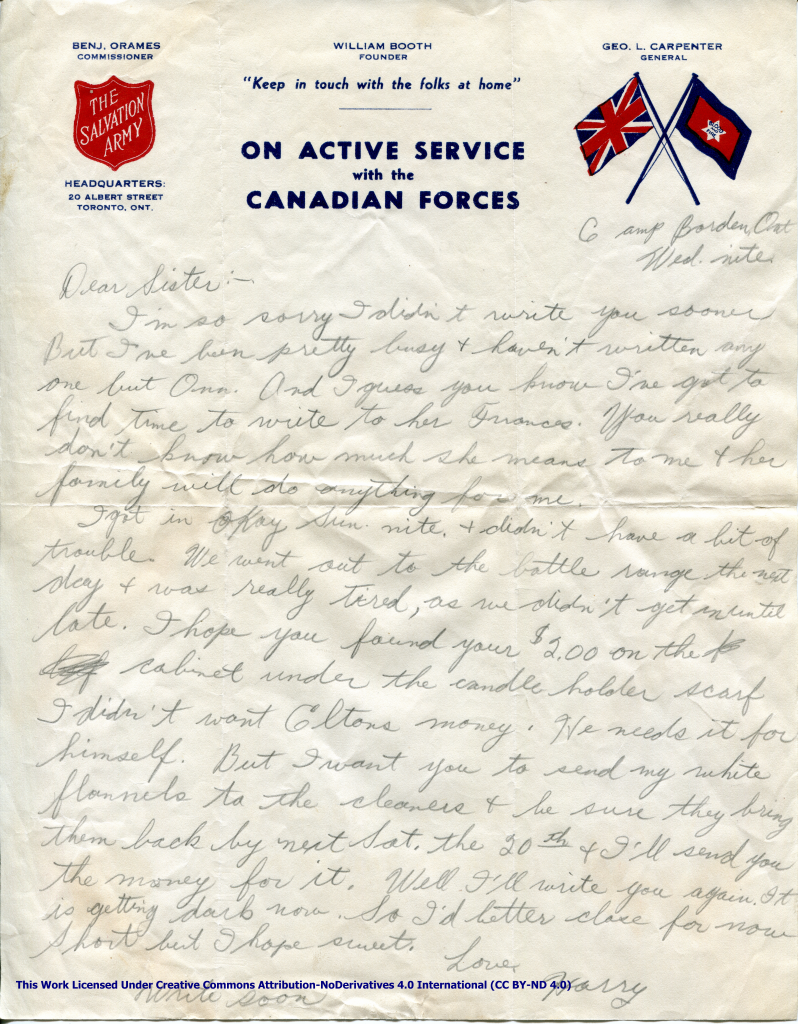 BENJ. ORAMES
COMMISSIONER
WILLIAM BOOTH
FOUNDER
GEO. L. CARPENTER
GENERAL
"Keep in touch with the folks at home"
THE
SALVATION
ARMY
ON ACTIVE SERVICE
with the
CANADIAN FORCES
HEADQUARTERS:
20 ALBERT STREET
TORONTO, ONT.
Camp Borden, Ont
Wed. nite.
Dear Sister:-
I'm so sorry I didn't write you sooner
But I've been pretty busy + haven't written any
one but Onn. And I guess you know I've got to
find time to write to her Frances. You really
don't know how much she means to me & her
family will do anything for me.
I got in okay Sun. nite. + didn't have a bit of
trouble. We went out to the battle range the next
day + was really tired, as we didn't get in until
late. I hope you found your $2.00 on the
cabinet under the candle holder scarf
I didn't want Eltons money. He needs it for
himself. But I want you to send my white
flannels to the cleaners + be sure they bring
them back by next Sat. the 20th & I'll send you
the money for it. Well I'll write you again. It
is getting dark now. So I'd better close for now
Short but I hope sweet.
Love
Harry
This Work Licensed Under Creative Commons Attribution-NoDerivatives 4.0 International (CC BY-ND 4.0)
Write soon